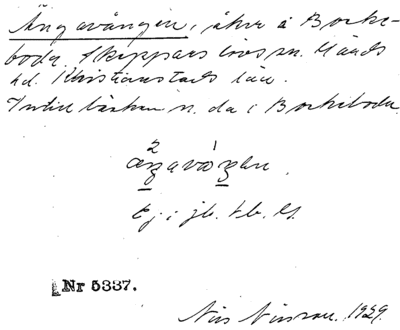 Ängavången, åker å Borke-
boda, Skeppars lövs sn. Gärds
hd. Kristianstads län.
Intill bäcken n. da i Borkeboda.
2 1
aŋavåŋen
Ej i jb. Kb. G.
Nr 5337.
Nils Nilsson. 1929.